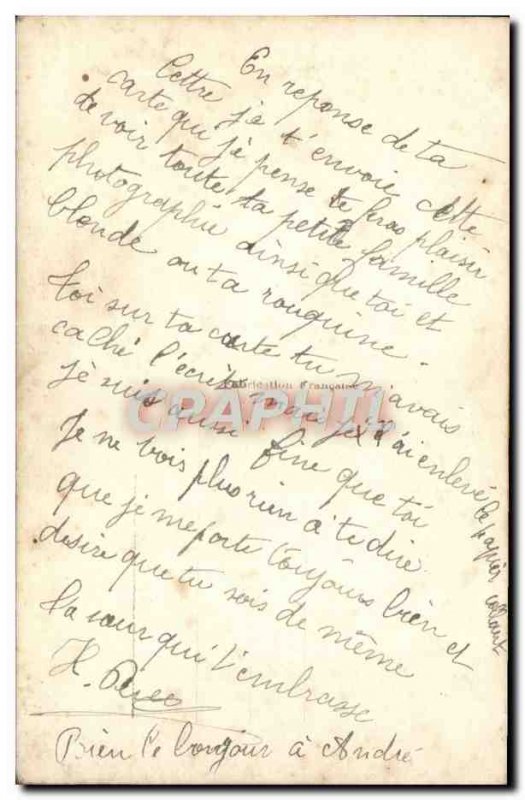 En reponse de ta
lettre je t'envoie cette
carte que je pense te feras plaisir
de voir toute ta petite famille
photographié ainsi que toi et
blonde ou ta rouquine.
toi sur ta carte tu m'avais
caché l'écrit mais je l'ai enlevé le papier
je suis aussi fine que toi
Je ne vois plus rien à te dire
que je me porte toujours bien et
desire que tu sois de même
Ta sœur qui t'embrasse
H.
Bien le bonjour à André
Fabrication Française
CRAPHTI.com